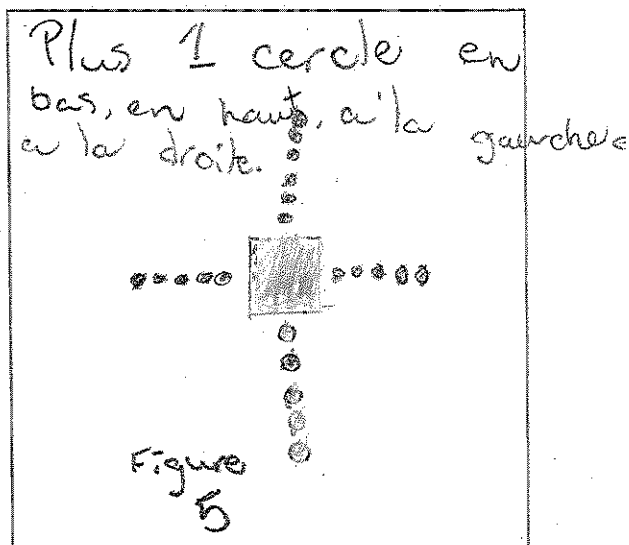 Plus 1 cercle en
bas, en haut, a' la gauche
a la droite.
Figure
5